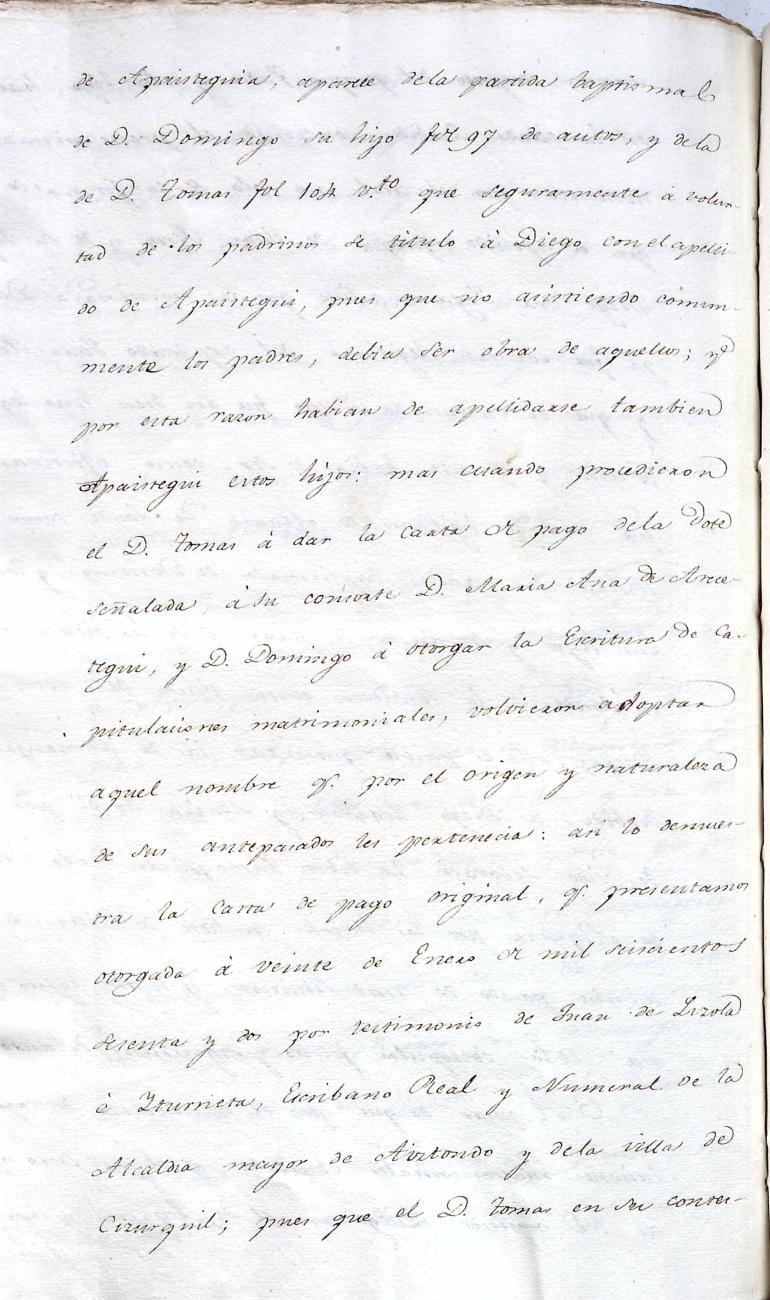 de Apaisteguia, aparece de la partida baptismal
de D. Domingo su hijo fol 97 de autos, y de la
de D. Tomas fol 104 v.to que seguramente à volun-
tad de los padrinos se titulo à Diego con el apelli-
do de Apaistegui, pues que no asistiendo comun-
mente los padres, debia ser obra de aquellos; y q
por esta razon habian de apellidarse tambien
Apaistegui estos hijos: mas cuando procedieron
el D. Tomas à dar la carta de pago de la dote
señalada à su consorte D. Maria Ana de Arce-
tegui, y D. Domingo à otorgar la Escritura de Ca-
pitulaciones matrimoniales, volvieron adoptar
aquel nombre q.e por el origen y naturaleza
de sus antepasados les pertenecia: asi lo demues-
tra la Carta de pago original, q.e presentamos
otorgada à veinte de Enero de mil seiscientos
sesenta y dos por testimonio de Juan de Lizola
è Yturrieta, Escribano Real y Numeral de la
Alcaldia mayor de Aiztondo y de la villa de
Cizurquil; pues que el D. Tomas en su contes-